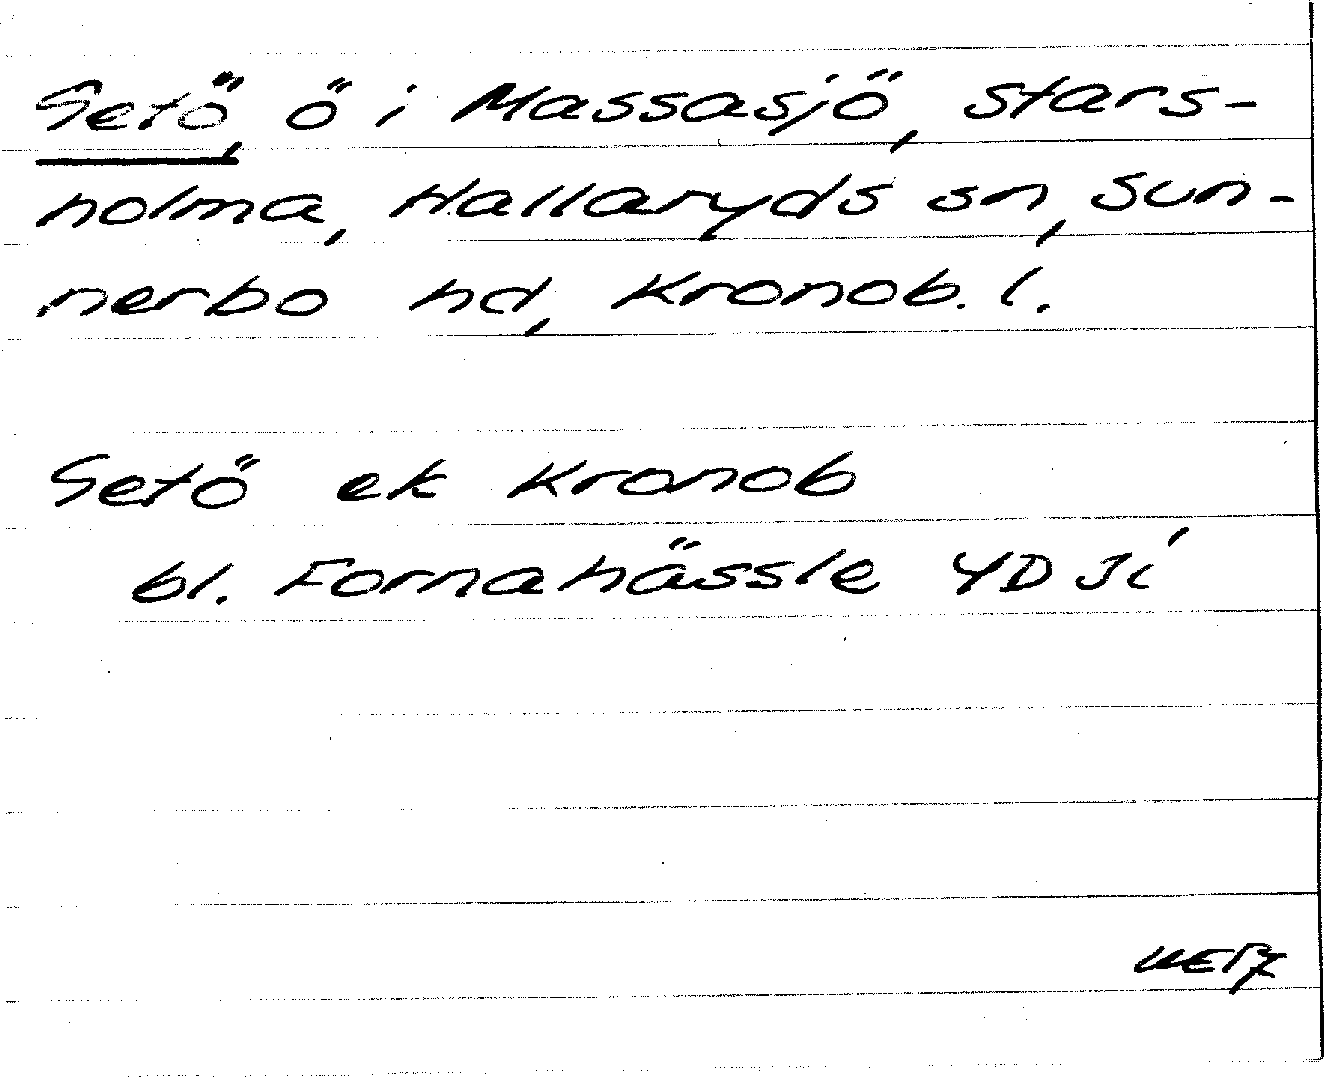 Getö, ö i Massasjö, Stars-
holma, Hallaryds sn, Sun-
nerbo hd, Kronob. l.
Getö ek Kronob
bl. Fornahässle 4D Ji